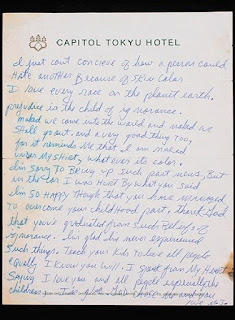 CAPITOL TOKYU HOTEL
I Just cant concieve of how a person could
Hate another Because of Skin Color
I love every race on the planet earth.
prejudice is the child of ignorance.
naked we come into the world and naked we
shall go out. and a very good thing too,
for it reminds Me that I am naked
under My Shirt, whatever its color.
Im Sorry to Bring up such past news, But
in the car I was Hurt By what you said
Im SO Happy though that you have managed
to overcome your childHood past, thank God
that you've graduated from Such Beliefs of
ignorance. Im glad Ive never experienced
Such things. Teach your kids to love all people
equally I know you will. I speak from My Heart
Saying I love you and all people especially the
children